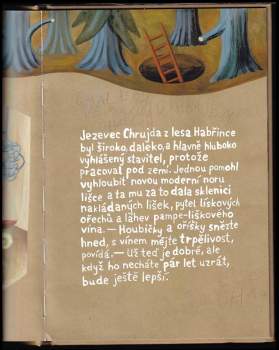 Jezevec Chrujda z lesa Habřince
byl široko, daleko, a hlavně hluboko
vyhlášený stavitel, protože
pracoval pod zemí. Jednou pomohl
vyhloubit novou moderní noru
lišce a ta mu za to dala sklenici
nakládaných lišek, pytel lískových
ořechů a láhev pampe-liškového
vína. — Houbičky a oříšky snězte
hned, s vínem mějte trpělivost,
povídá. — Už teď je dobré, ale
když ho necháte pár let uzrát,
bude ještě lepší.